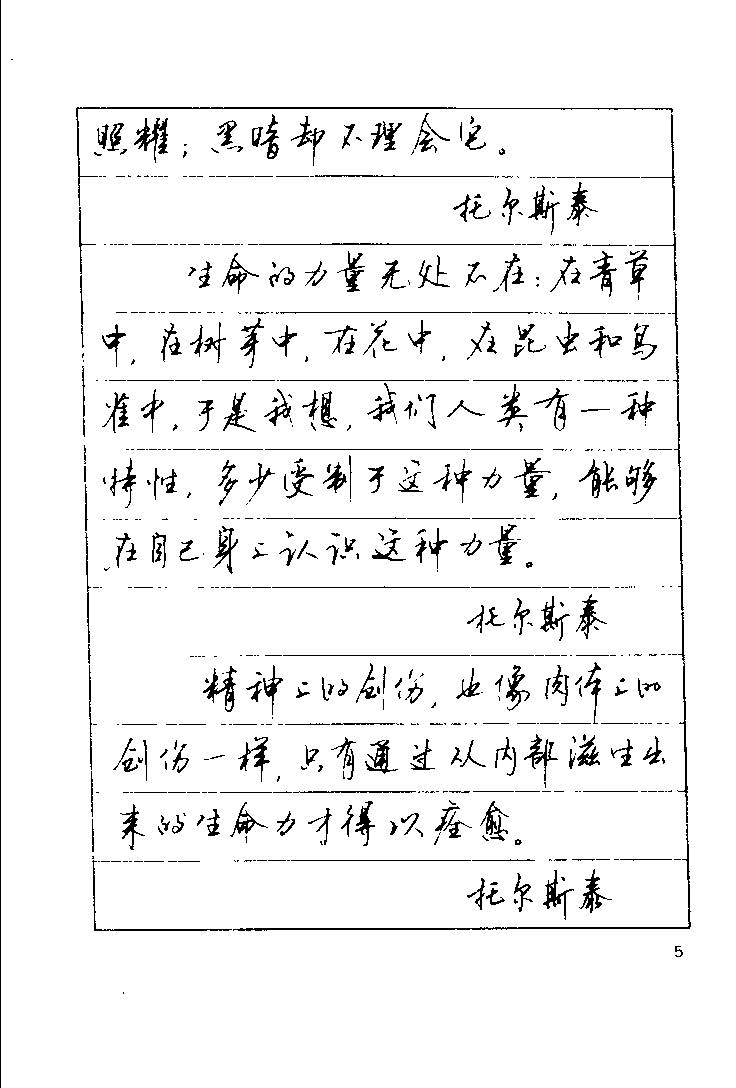 照耀；黑暗却不理会它。
托尔斯泰
生命的力量无处不在：在青草
中，在树芽中，在花中，在昆虫和鸟
雀中，于是我想，我们人类有一种
特性，多少受制于这种力量，能够
在自己身上认识这种力量。
托尔斯泰
精神上的创伤，也像肉体上的
创伤一样，只有通过从内部滋生出
来的生命力才得以痊愈。
托尔斯泰
5